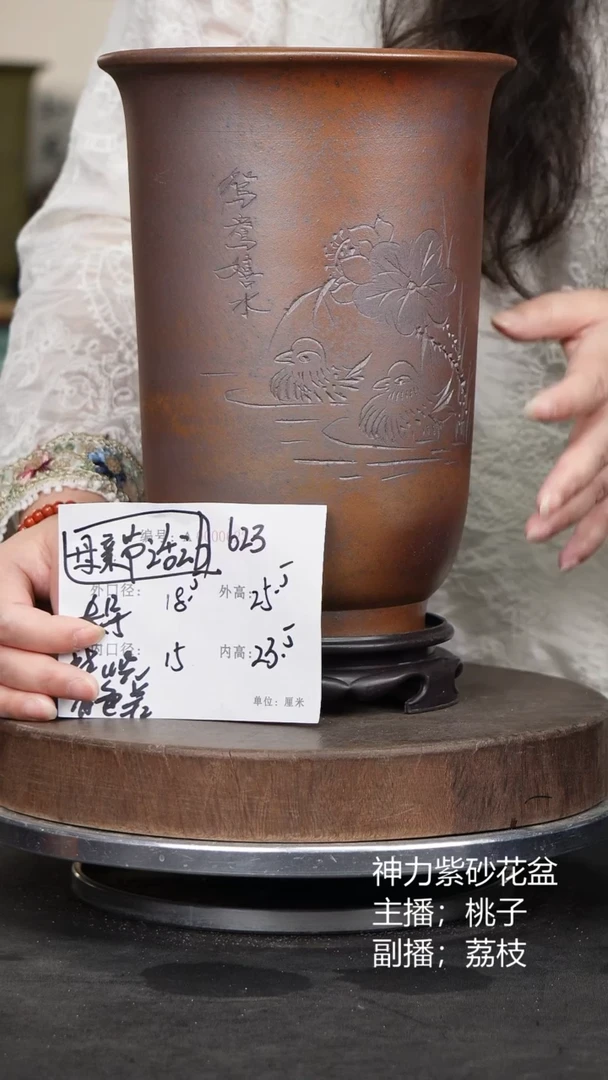 鸳鸯嬉水
编号:
母亲节
623
外口径: 18.5 外高: 25.5
内口径: 15 内高: 23.5
单位: 厘米
神力紫砂花盆
主播；桃子
副播；荔枝